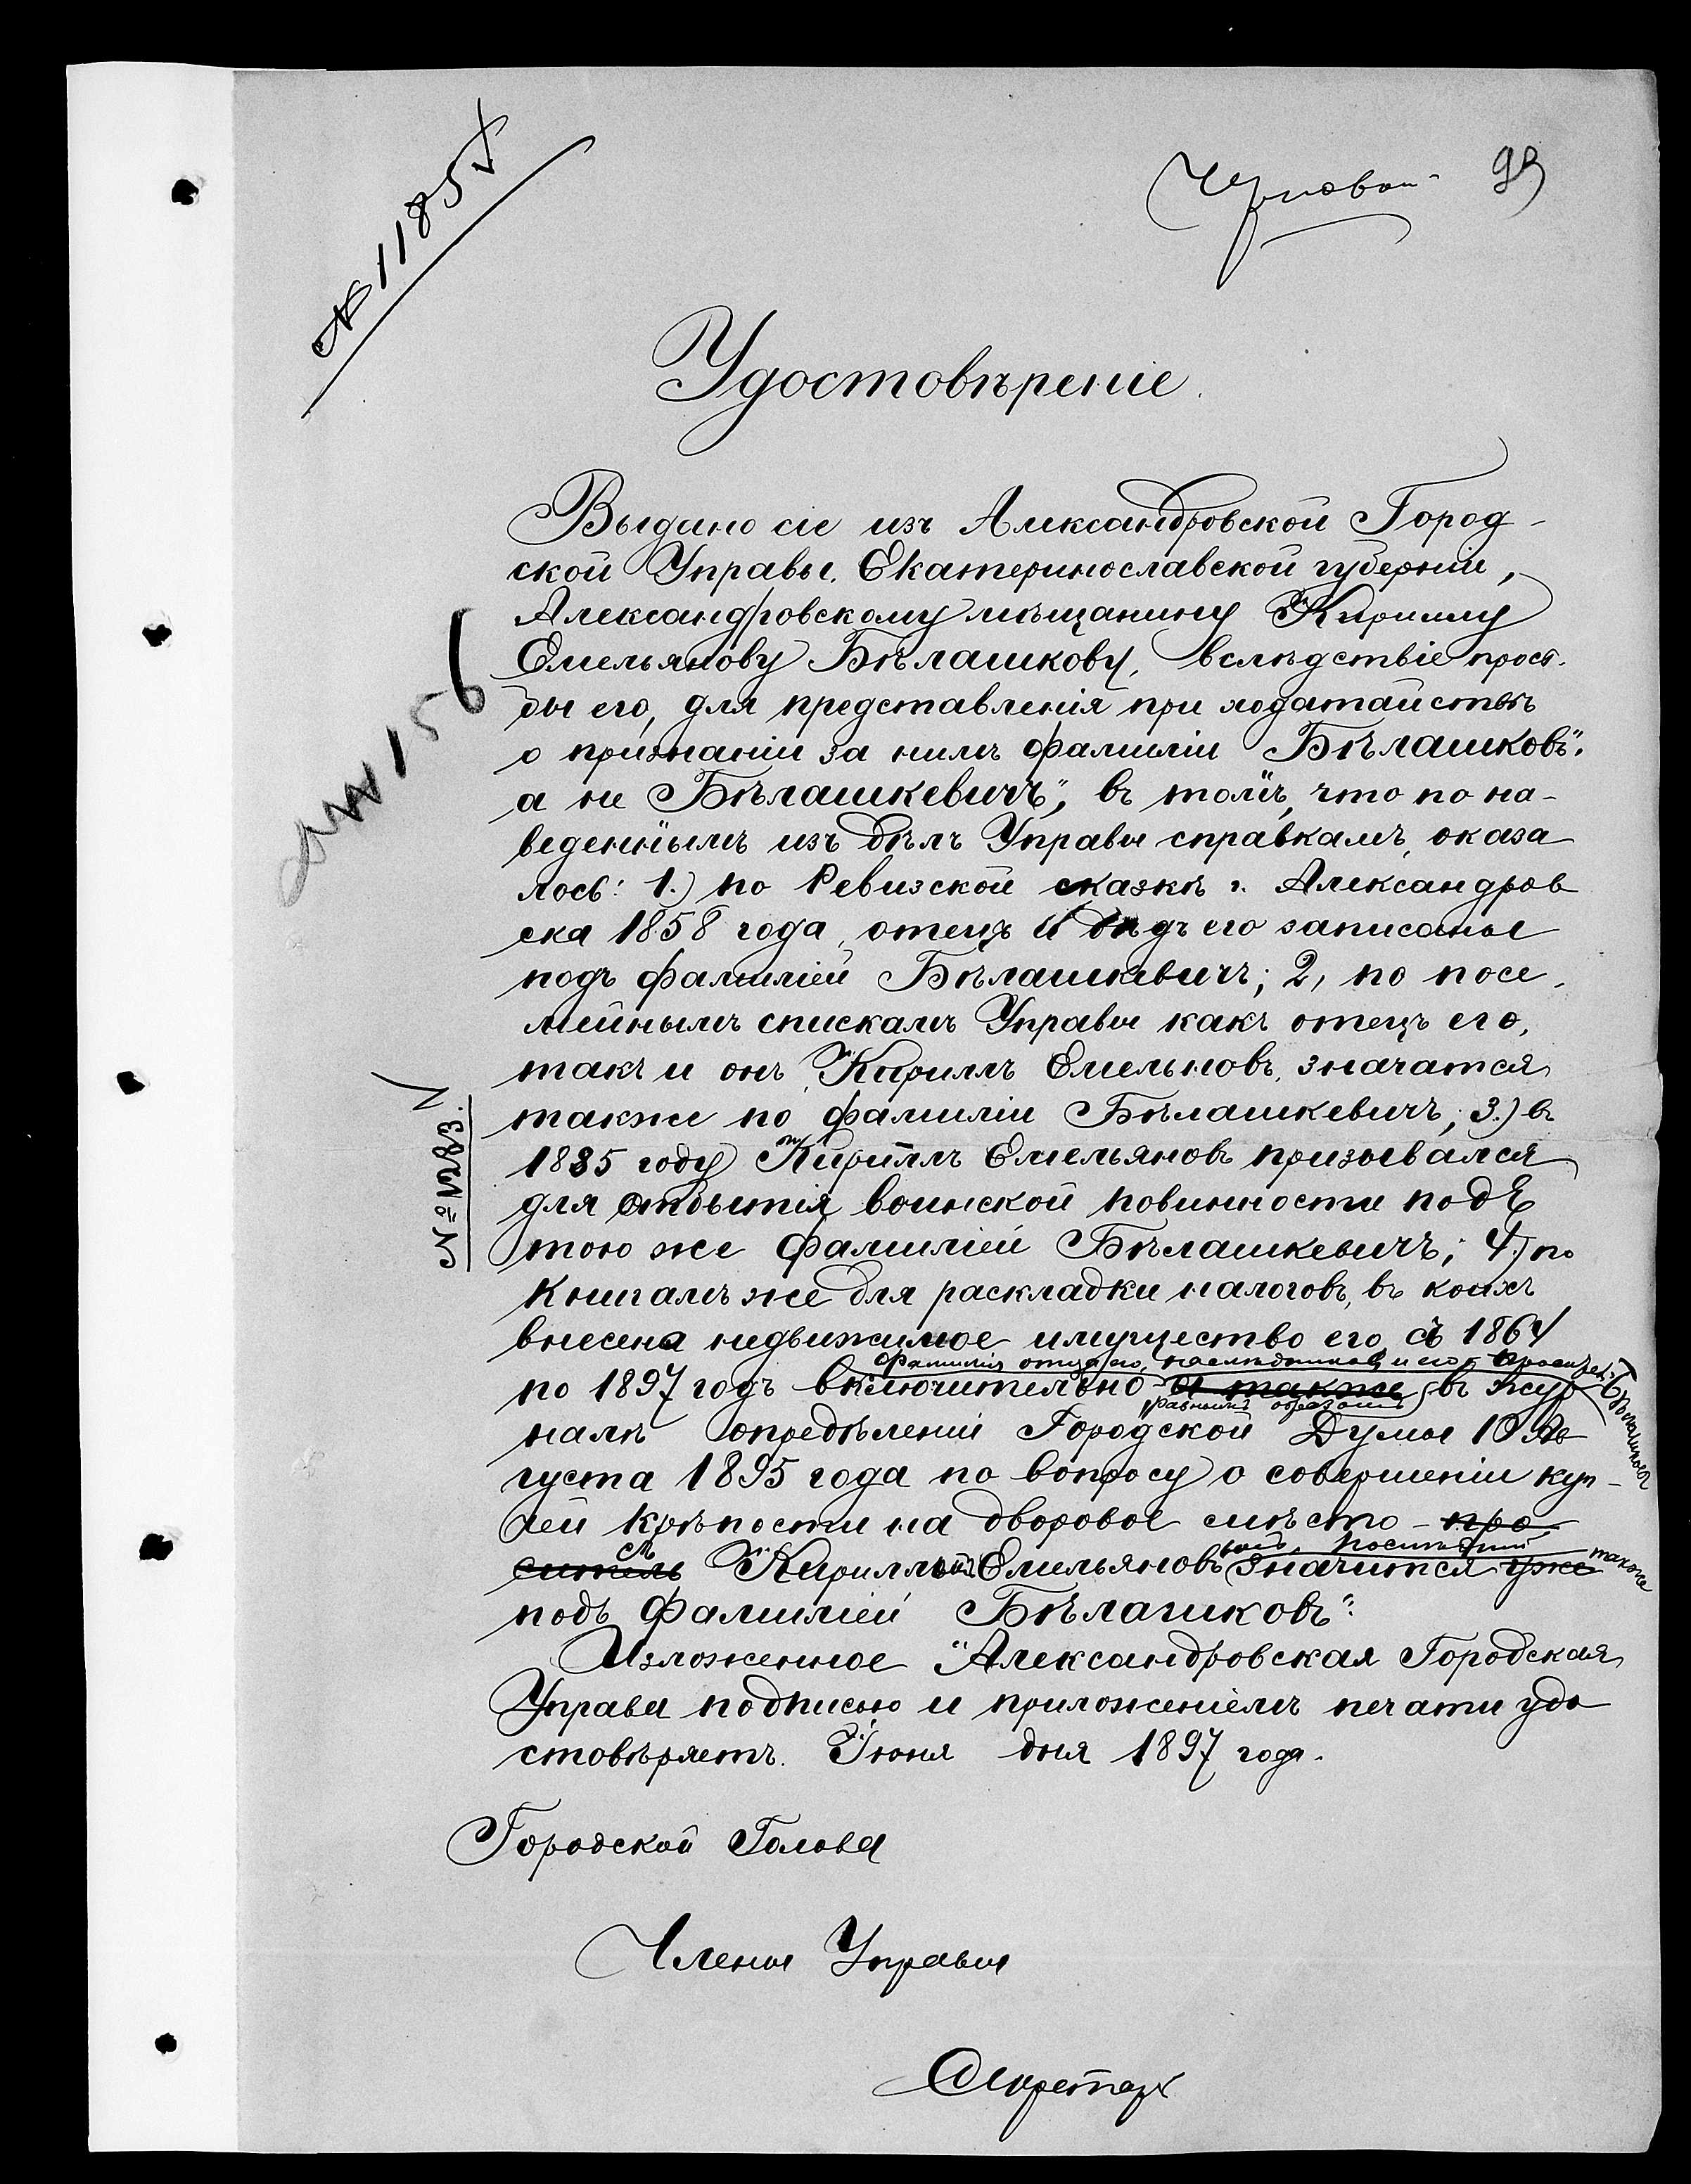 № 1185
Черновой
99
Удостовѣреніе.
Выдано сіе изъ Александровской Город-
ской Управы, Екатеринославской губерніи,
Александровскому мѣщанину Кириллу
Емельянову Бѣлашкову, вслѣдствіе прось-
бы его, для представленія при ходатайствѣ
о признаніи за нимъ фамиліи "Бѣлашковъ",
а не "Бѣлашкевичъ", въ томъ, что по на-
веденнымъ изъ дѣлъ Управы справкамъ, оказа
лось: 1.) по Ревизской сказкѣ г. Александров
ска 1858 года, отецъ и дѣдъ его записаны
подъ фамиліей Бѣлашкевичъ; 2, по посе-
мейнымъ спискамъ Управы какъ отецъ его,
такъ и онъ, Кириллъ Емельновъ, значатся
также по фамиліи Бѣлашкевичъ; 3.) въ
1885 году Кириллъ Емельяновъ призывался
для отбытія воинской повинности подъ
тою же фамиліей Бѣлашкевичъ; 4.) по
книгамъ же для раскладки налоговъ, въ коихъ
внесена недвижимое имущество его съ 1864
фамилія отца его, наслѣдниковъ и его
Бѣлашковъ
по 1897 годъ включительно а также въ жур
равнымъ образомъ
налѣ опредѣленій Городской Думы 10 Ав
густа 1895 года по вопросу о совершеніи куп-
чей крѣпости на дворовое мѣсто - про
ситель Кириллъ Емельяновъ значится уже
также
подъ фамиліей "Бѣлашковъ".
Изложенное Александровская Городская
Управа подписью и приложеніемъ печати удо
стовѣряетъ. Іюня дня 1897 года.
Городской Голова
Члены Управы
Секретарь
№ 156
№ 1283.